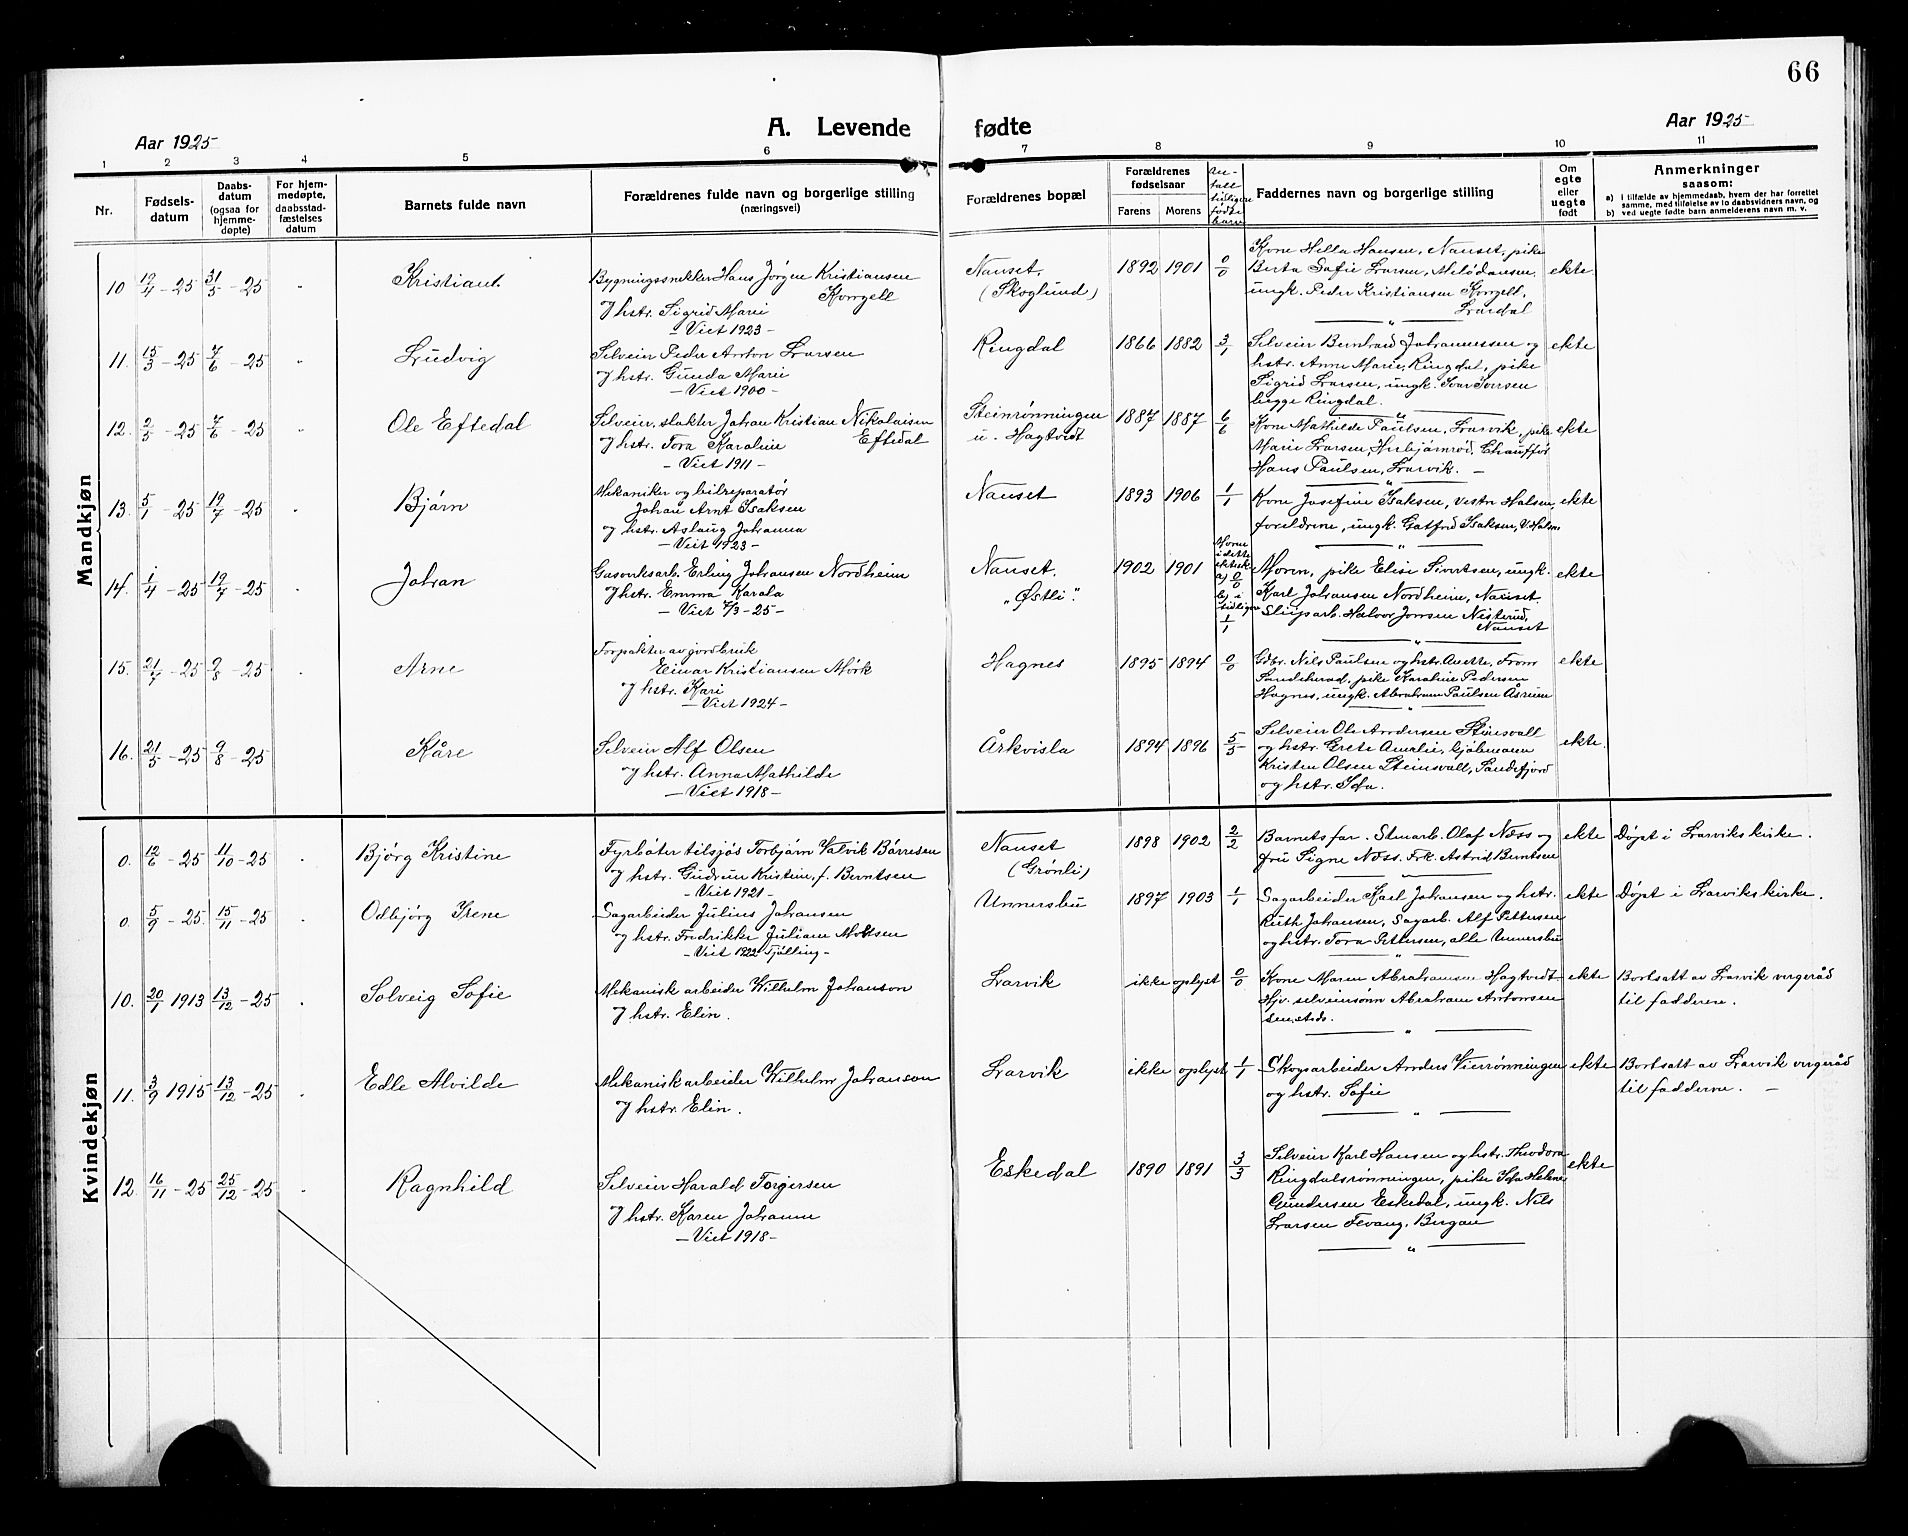 66
Aar 1925
A. Levende
fødte
Aar 1925
1 2 3 4 5 6 7 8 9 10 11
Nr.
Fødsels-
datum
Daabs-
datum
(ogsaa for
hjemme-
døpte)
For hjem-
medøpte,
daabsstad-
fæstelses
datum
Barnets fulde navn
Forældrenes fulde navn og borgerlige stilling
(næringsvei)
Forældrenes bopæl
Forældrenes
fødselsaar
Farens Morens
An-
tall
tidligere
fødte
barn
Faddernes navn og borgerlige stilling
Om
egte
eller
uegte
født
Anmerkninger
saasom:
a) i tilfælde av hjemmedaab, hvem der har forrettet
samme, med tilføielse av to daabsvidners navn, og
b) ved uegte fødte barn anmelderens navn m. v.
Mandkjøn
10 19/4 - 25 31/5 - 25 Kristian
Bygningssnekker Hans Jørgen Kristiansen
Korrgell
og hstr. Sigrid Marie
- Viet 1923 -
Nanset.
(Skoglund)
1892 1901 0/0
Kone Hella Hansen, Nanset, pike
Berta Sofie Larsen,
ungk. Peder Kristiansen Korrgell,
Lardal
ekte
11. 15/3 - 25 7/6 - 25 Ludvig
Selveier Peder Anton Larsen
og hstr. Gunda Marie
- Viet 1900 -
Ringdal
1866 1882 3/1
Selveier Bernhard Johannessen og
hstr. Anne Marie, Ringdal, pike
Sigrid Larsen, ungk. Ivar Iversen
begge Ringdal.
ekte
12. 2/5 - 25 7/6 - 25 Ole Eftedal
Selveier, slakter Johan Kristian Nikolaisen
Eftedal
og hstr. Tora Karoline
- Viet 1911 -
Steinrønningen
u. Hagtvedt
1887 1887 6/6
Kone Mathilde Paulsen, Larvik, pike
Marie Larsen, Chauffør
Hans Paulsen, Larvik. -
ekte
13. 5/1 - 25 19/7 - 25 Bjørn
Mekaniker og bilreparatør
Johan Arnt Isaksen
og hstr. Aslaug Johanna
- Viet 1923 -
Nanset
1893 1906 1/1
Kone Josefine Isaksen, Vestre Halsen,
foreldrene, ungk. Gotfred Isaksen, V. Halsen
ekte
14. 1/4 - 25 19/7 - 25 Johan
Gasverksarb. Erling Johansen Nordheim
og hstr. Emma Karola
- Viet 7/3 - 25 -
Nanset.
„Østli".
1902 1901
Moren
i dette
ektesk.
a) 0/0
b) i
tidligere
1/1
Moren, pike Elise Sivertsen, ungk.
Karl Johansen Nordheim, Nanset.
Sliparb. Halvor Jonsen Nisterud,
Nanset
ekte
15. 21/7 - 25 2/8 - 25 Arne
Forpakter av jordbruk
Einar Kristiansen Mørk
og hstr. Kari
- Viet 1924 -
Hagnes
1895 1894 0/0
Gdbr. Nils Paulsen og hstr. Anette, From
Sandeherad, pike Karoline Pedersen
Hagnes, ungk. Abraham Paulsen Åsrum
ekte
16. 21/5 - 25 9/8 - 25 Kåre
Selveier Alf Olsen
og hstr. Anna Mathilde
- Viet 1918 -
Årkvisla
1894 1896 5/5
Selveier Ole Andersen Stensvall
og hstr. Grete Amalie, kjøbmann
Kristen Olsen Steinsvall, Sandefjord
og hstr. Ida.
ekte.
Kvindekjøn
0. 12/6 - 25 11/10 - 25 Bjørg Kristine
Fyrbøter tilsjøs Torbjørn Valvik Børresen
og hstr. Gudrun Kristine, f. Berntsen
- Viet 1921 -
Nanset
(Grønli)
1898 1902 2/2
Barnets far. Stenarb. Olaf Næss og
fru Signe Næss. Frk. Astrid Berntsen
ekte
Døpt i Larviks kirke.
0. 5/9 - 25. 15/11 - 25 Odbjørg Irene
Sagarbeider Julius Johansen
og hstr. Fredrikke Juliane Moltsen
- Viet 1922 Tjølling -
Unnersbu
1897 1903 1/1
Sagarbeider Karl Johansen og hstr.
Ruth Johansen, Sagarb. Alf Pettersen
og hstr. Tora Pettersen, alle Unnersbu
ekte
Døpt i Larviks kirke.
10. 20/7 1913 13/12 - 25 Solveig Sofie
Mekanisk arbeider Wilhelm Johanson
og hstr. Elin.
Larvik
ikke oplyst 0/0
Kone Maren Abrahamsen Hagtvedt
Hjv. selveiersønn Abraham Antonsen
sen.steds.
ekte
Bortsatt av Larvik vergeråd
til fadderne.
11. 3/9 1915 13/12 - 25 Edle Alvilde
Mekanisk arbeider Wilhelm Johanson
og hstr. Elin.
Larvik
ikke oplyst 1/1
Skogsarbeider Anders Vierrønningen
og hstr. Sofie
ekte
Bortsatt av Larvik vergeråd
til fadderne. -
12. 16/11 - 25 25/12 - 25 Ragnhild
Selveier Harald Torgersen
og hstr. Karen Johanne
- Viet 1918 -
Eskedal
1890 1891 3/3
Selveier Karl Hansen og hstr. Theodora
Ringdalsrønningen, pike Ida Helene
Gundersen Eskedal, ungk. Nils
Larsen Fevang, Bergan
ekte